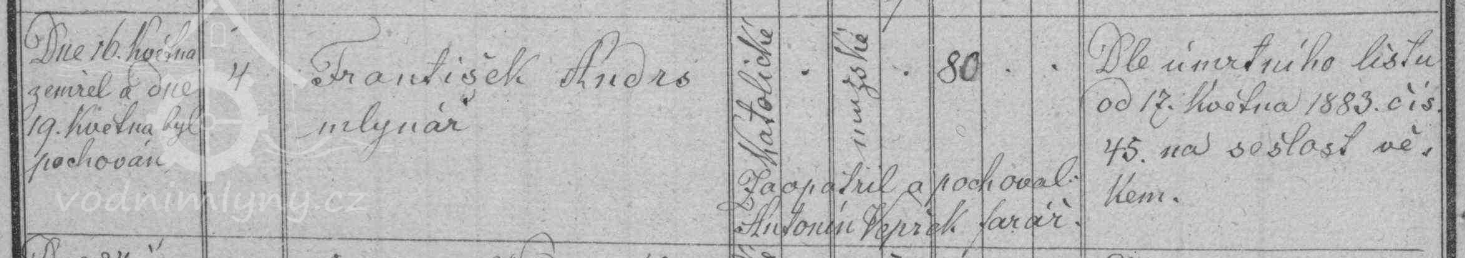 Dne 16. Května
zemřel a dne
19. Května byl
pochován
4
František Andrs
mlynář
Katolické
mužské
80
Zaopatřil a pochoval
Antonín Vepřek farář.
Dle úmrtního listu
od 17. Května 1883. čís.
45. na sešlost vě-
kem.
vodnimlyny.cz